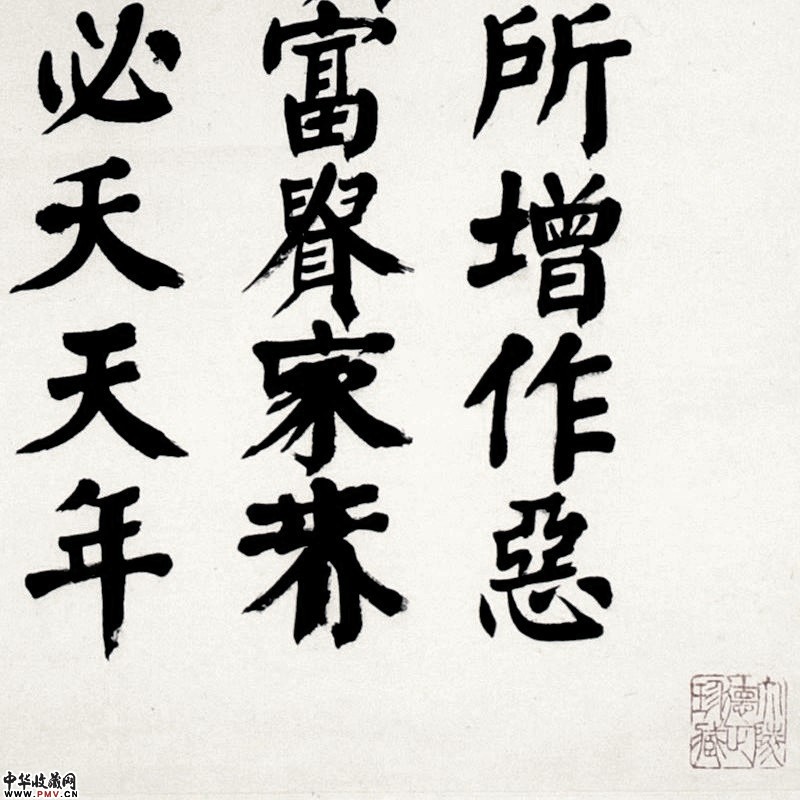 所增作惡
富家
必夭天年
珍藏
中华收藏网
WWW.PMV.CN